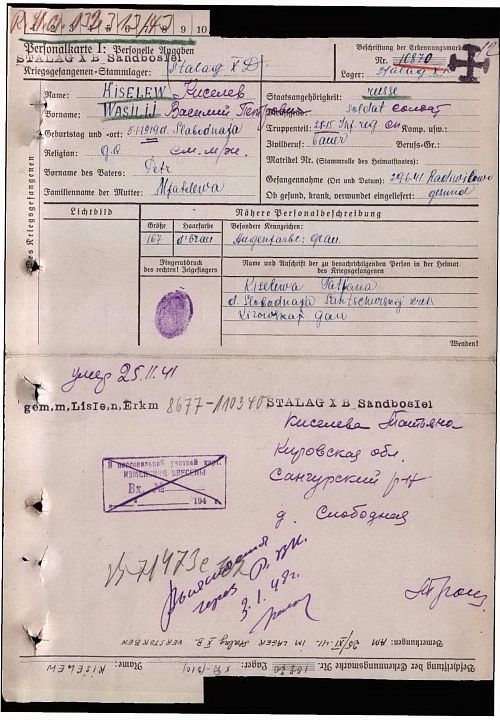 8 9 10
Personalkarte I: Personelle Angaben
Beschriftung der Erkennungsmarke
STALAG X B Sandbostel
Nr. 10870
Kriegsgefangenen-Stammlager: Stalag X D
Lager: Stalag X
Des Kriegsgefangenen
Name: KISELEW Киселев
Staatsangehörigkeit: russe
Vorname: WASILIJ Василий Петрович
soldat солдат
Geburtstag und -ort: 5.1.1919 d. Slabodnaja
Truppenteil: Inf. reg Komp. usw.:
Religion:
Zivilberuf: bauer Berufs-Gr.:
Vorname des Vaters: Petr
Matrikel Nr. (Stammrolle des Heimatstaates)
Gefangennahme (Ort und Datum): 29.6.41 Radwilowo
Familienname der Mutter: Mjatelewa
Ob gesund, krank, verwundet eingeliefert: gesund
Lichtbild
Nähere Personalbeschreibung
Größe Haarfarbe Besondere Kennzeichen:
167 d'braun Augenfarbe: grau
Fingerabdruck
des rechten! Zeigefingers
Name und Anschrift der zu benachrichtigenden Person in der Heimat
des Kriegsgefangenen
Kiselewa Tatjana
d. Slabodnaja
Wenden!
умер 25.11.41
8677-110340 STALAG X B Sandbostel
Киселева Татьяна
Кировская обл.
Сангурский р-н
д. Слободная
В персональной учетной карт.
ИЗМЕНЕНИЯ ВНЕСЕНЫ
Вх. №
194 г.
через
3.1.49г.
Bemerkungen: AM 25/XI.-41. IM LAGER Stalag X B. VERSTORBEN
Beschriftung der Erkennungsmarke Nr. 10870 Lager: X D (310) Name: KISELEW